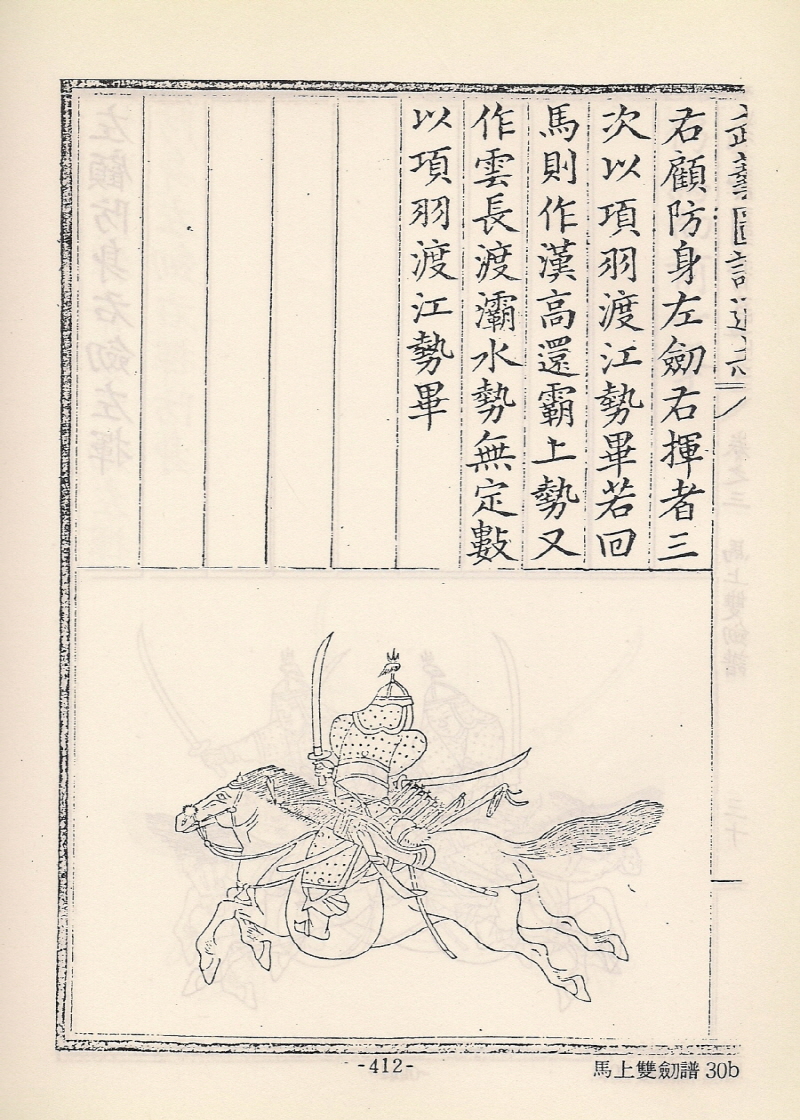 武藝圖譜通志
右顧防身左劒右揮者三
次以項羽渡江勢畢若回
馬則作漢高還霸上勢又
作雲長渡灞水勢無定數
以項羽渡江勢畢
-412-
馬上雙劒譜 30b